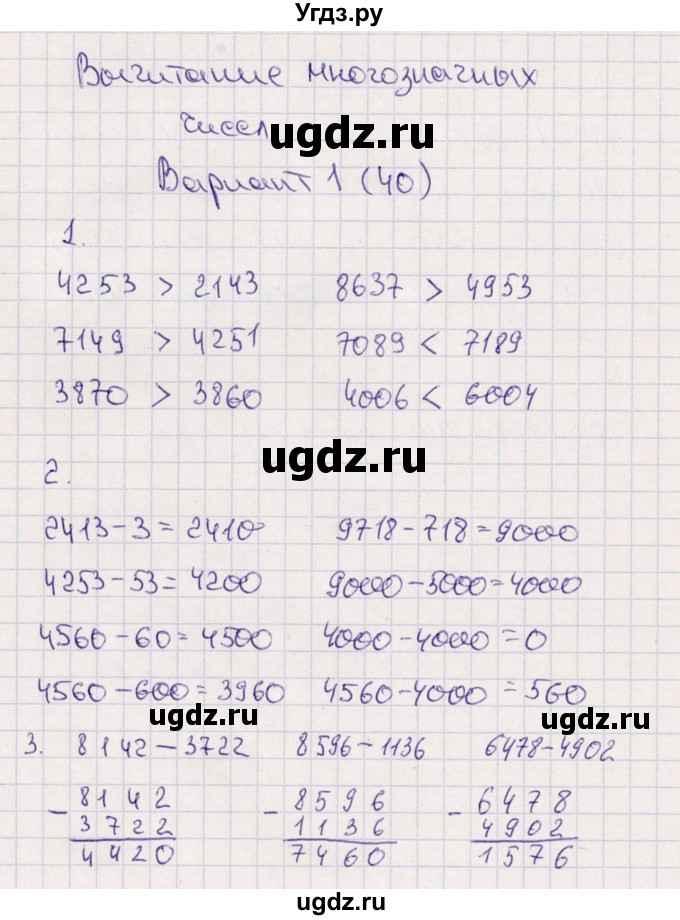 Угдз.ру
Вычитание многозначных
чисел
ugdz.ru
Вариант 1 (40)
1.
4253 > 2143 8637 > 4953
7149 > 4251 7089 < 7189
3870 > 3860 4006 < 6004
ugdz.ru
2.
2413-3=2410 9718-718=9000
4253-53=4200 9000-5000=4000
4560-60=4500 4000-4000=0
4560-600=3960 4560-4000=560
ugdz.ru ugdz.ru
3. 8142-3722 8596-1136 6478-4902
- 8142 - 8596 - 6478
3722 1136 4902
4420 7460 1576
ugdz.ru ugdz.ru